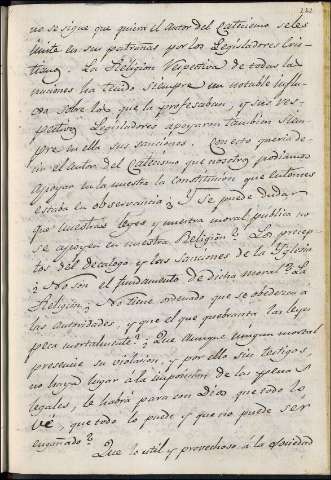 222
no se sigue que quiera el autor del Catecismo se les
imite en sus patrañas por los Legisladores Cris-
tianos. La Religion respectiva de todas las
naciones ha tenido siempre un notable influ-
xo sobre los que la profesaban, y sus res-
pectivos Legisladores apoyaron tambien siem-
pre en ella sus sanciones. Con esto queria de-
cir el autor del Catecismo que nosotros podiamos
apoyar en la nuestra la constitucion que entonces
estaba en observancia ¿Y se puede dudar
que nuestras leyes y nuestra moral publica no
se apoyen en nuestra Religion? Los precep-
tos del decalogo y las sanciones de la Iglesia
¿No son el fundamento de dicha moral? La
Religion ¿No tiene ordenado que se obedezca a
las autoridades, y que el que quebranta las leyes
peca mortalmente? ¿Que aunque ningun mortal
presencie su violacion, y por ello sin testigos,
no haya lugar a la imposicion de las penas
legales, le habrá para con Dios que todo lo
vé, que todo lo puede y que no puede ser
engañado?
Que lo util y provechoso á la sociedad